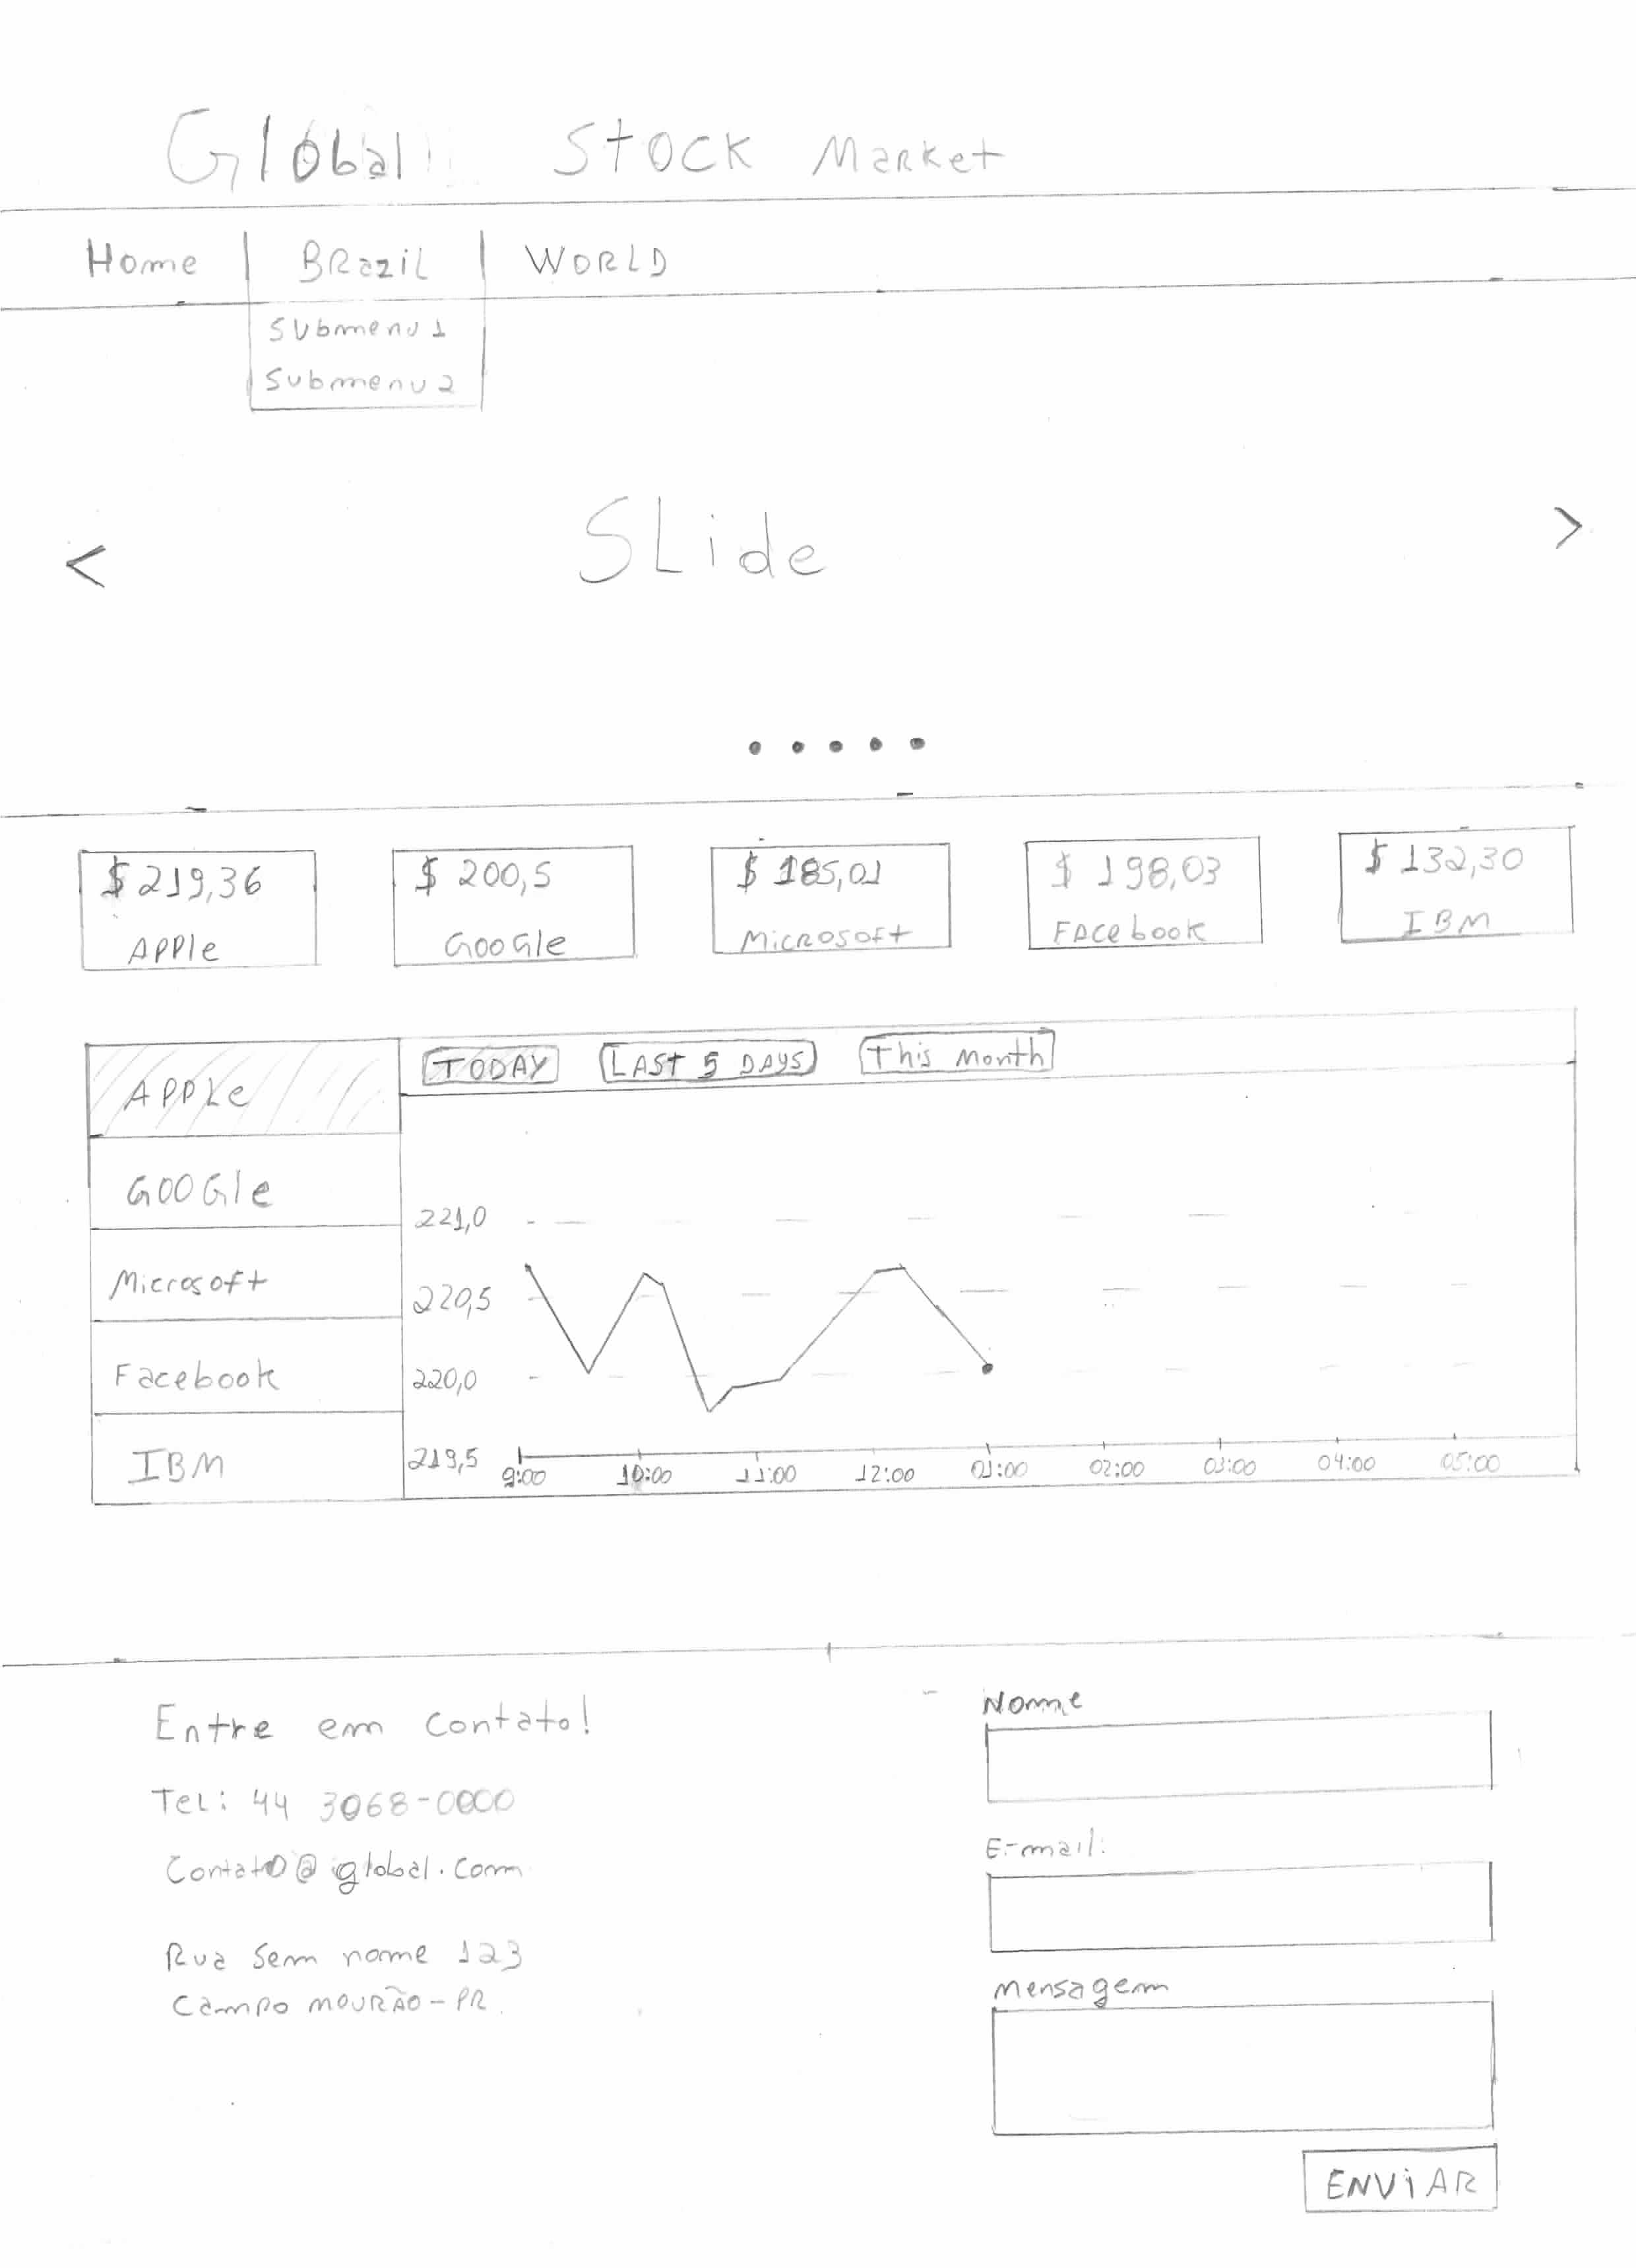 Global Stock Market
Home | Brazil | World
Submenu 1
Submenu 2
< Slide >
$ 219,36
Apple
$ 200,5
Google
$ 185,01
Microsoft
$ 198,03
Facebook
$ 132,30
IBM
Apple
Google
Microsoft
Facebook
IBM
TODAY LAST 5 DAYS This Month
221,0
220,5
220,0
219,5
9:00 10:00 11:00 12:00 01:00 02:00 03:00 04:00 05:00
Entre em contato!
Tel: 44 3068-0000
Contato@global.com
Rua Sem nome 123
Campo Mourão - PR.
Nome
E-mail:
Mensagem
ENVIAR